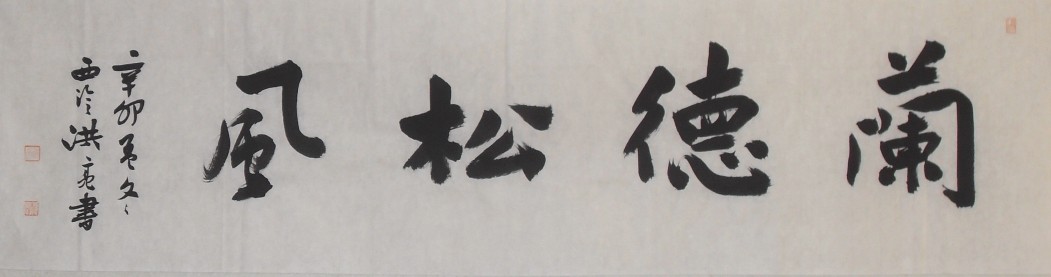 蘭德松風
辛卯孟冬
西泠洪亮書